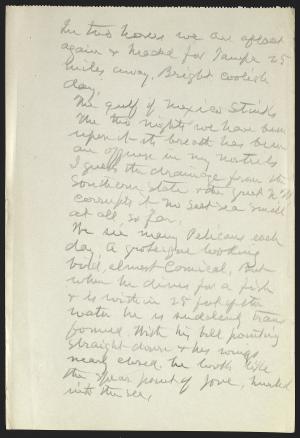 In two hours we are afloat
again & headed for Tampa 25
miles away. Bright coolish
day.
The gulf of Mexico stinks
The two nights we have been
upon it its breath has been
an offense in my nostrils
I guess the drainage from the
Southern State & the great
corrupts it no sea smell
at all so far.
We see many Pelicans each
day. A grotesque looking
bird, almost Comical, But
when he dives for a fish
& is within 25 feet of the
water he is suddenly trans
formed. With his bill pointing
straight down & his wings
nearly closed he looks like
the spear point of Jove, hurled
into the sea,